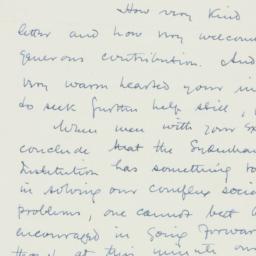 How very kind
letter and how very welcome
generous contribution. And
very warm hearted your in
do seek further help still,
When men with your Ex
conclude that the Sydenham
Institution has something to
in solving our complex socia
problems, one cannot best
encouraged in going forward
at this minute our